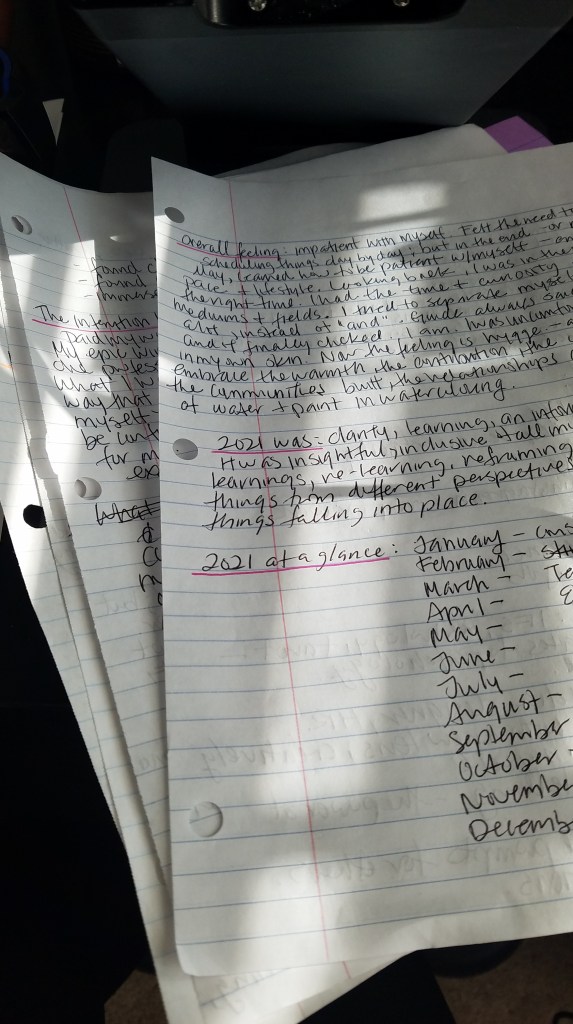 Overall feeling: impatient with myself. Felt the need t
scheduling things day by day, but in the end - or
May, learned how to be patient w/myself -
pace + lifestyle. Looking back, I was in the
the right time. I had the time + curiosity
mediums + fields. I tried to separate mysel
a lot instead of "and". Guide always sai
and I finally clicked. I am. I was uncomfor
in my own skin. Now the feeling is hygge - a
embrace the warmth, the contribution, the
the communities built, the relationships
of water + paint in watercoloring.
2021 was: clarity, learning, an
It was insightful, inclusive of all my
learnings, re-learning, reframing,
things from different perspectives
things falling into place.
2021 at a glance: January - cms
February -
March - Te
April -
May -
June -
July -
August -
September
October -
November
Decemb
- found c
- found
- immers
The intention
paid my w
My epic
one profess
what I w
way that
myself.
be un
for m
ex
What